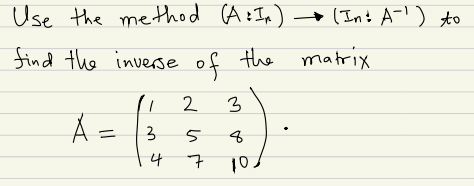 Use the method (A⋮Iₙ) → (Iₙ⋮A⁻¹) to
find the inverse of the matrix
A = ( 1 2 3
3 5 8
4 7 10 ) .